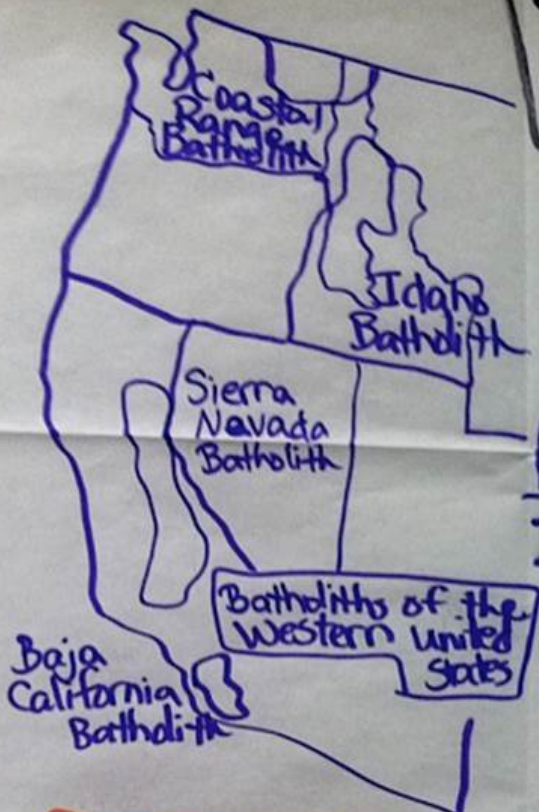 Coastal
Range
Batholith
Idaho
Batholith
Sierra
Nevada
Batholith
Batholiths of the
Western United
States
Baja
California
Batholith